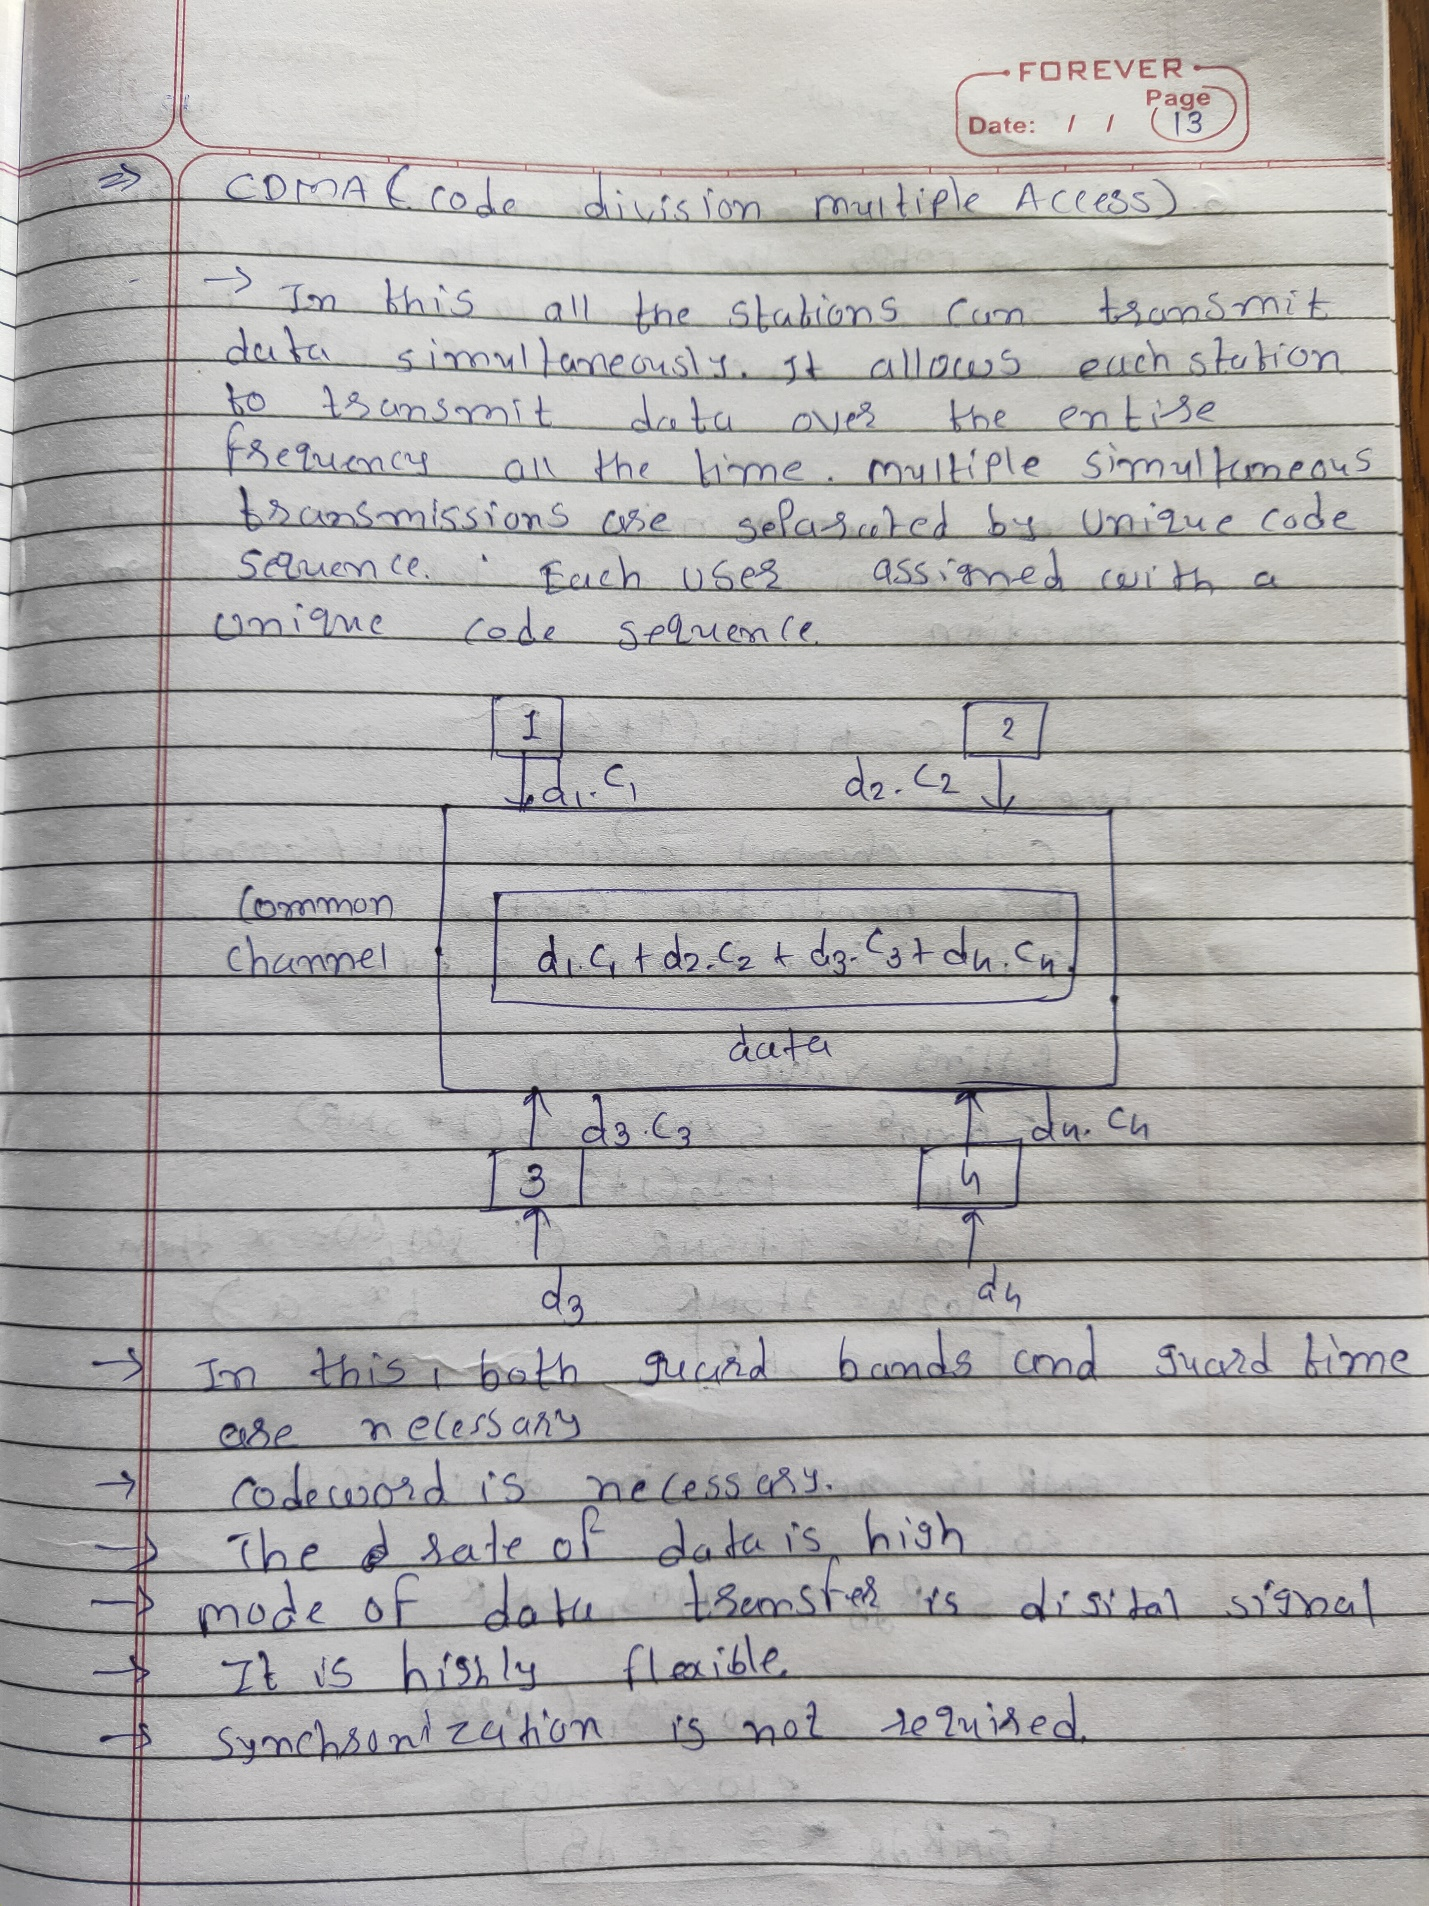 FOREVER
Page
Date: / / 13
⇒ CDMA (code division multiple Access)
→ In this all the stations can transmit
data simultaneously. It allows each station
to transmit data over the entire
frequency all the time. multiple simultaneous
transmissions are separated by unique code
sequence. Each user assigned with a
unique code sequence.
1 2
d1.C1 d2.C2
Common
channel
d1.C1 + d2.C2 + d3.C3 + d4.C4.
data
d3.C3 d4.C4
3 4
d3 d4
→ In this, both guard bands and guard time
are necessary
→ codeword is necessary.
→ The rate of data is high
→ mode of data transfer is digital signal
→ It is highly flexible.
→ synchronization is not required.